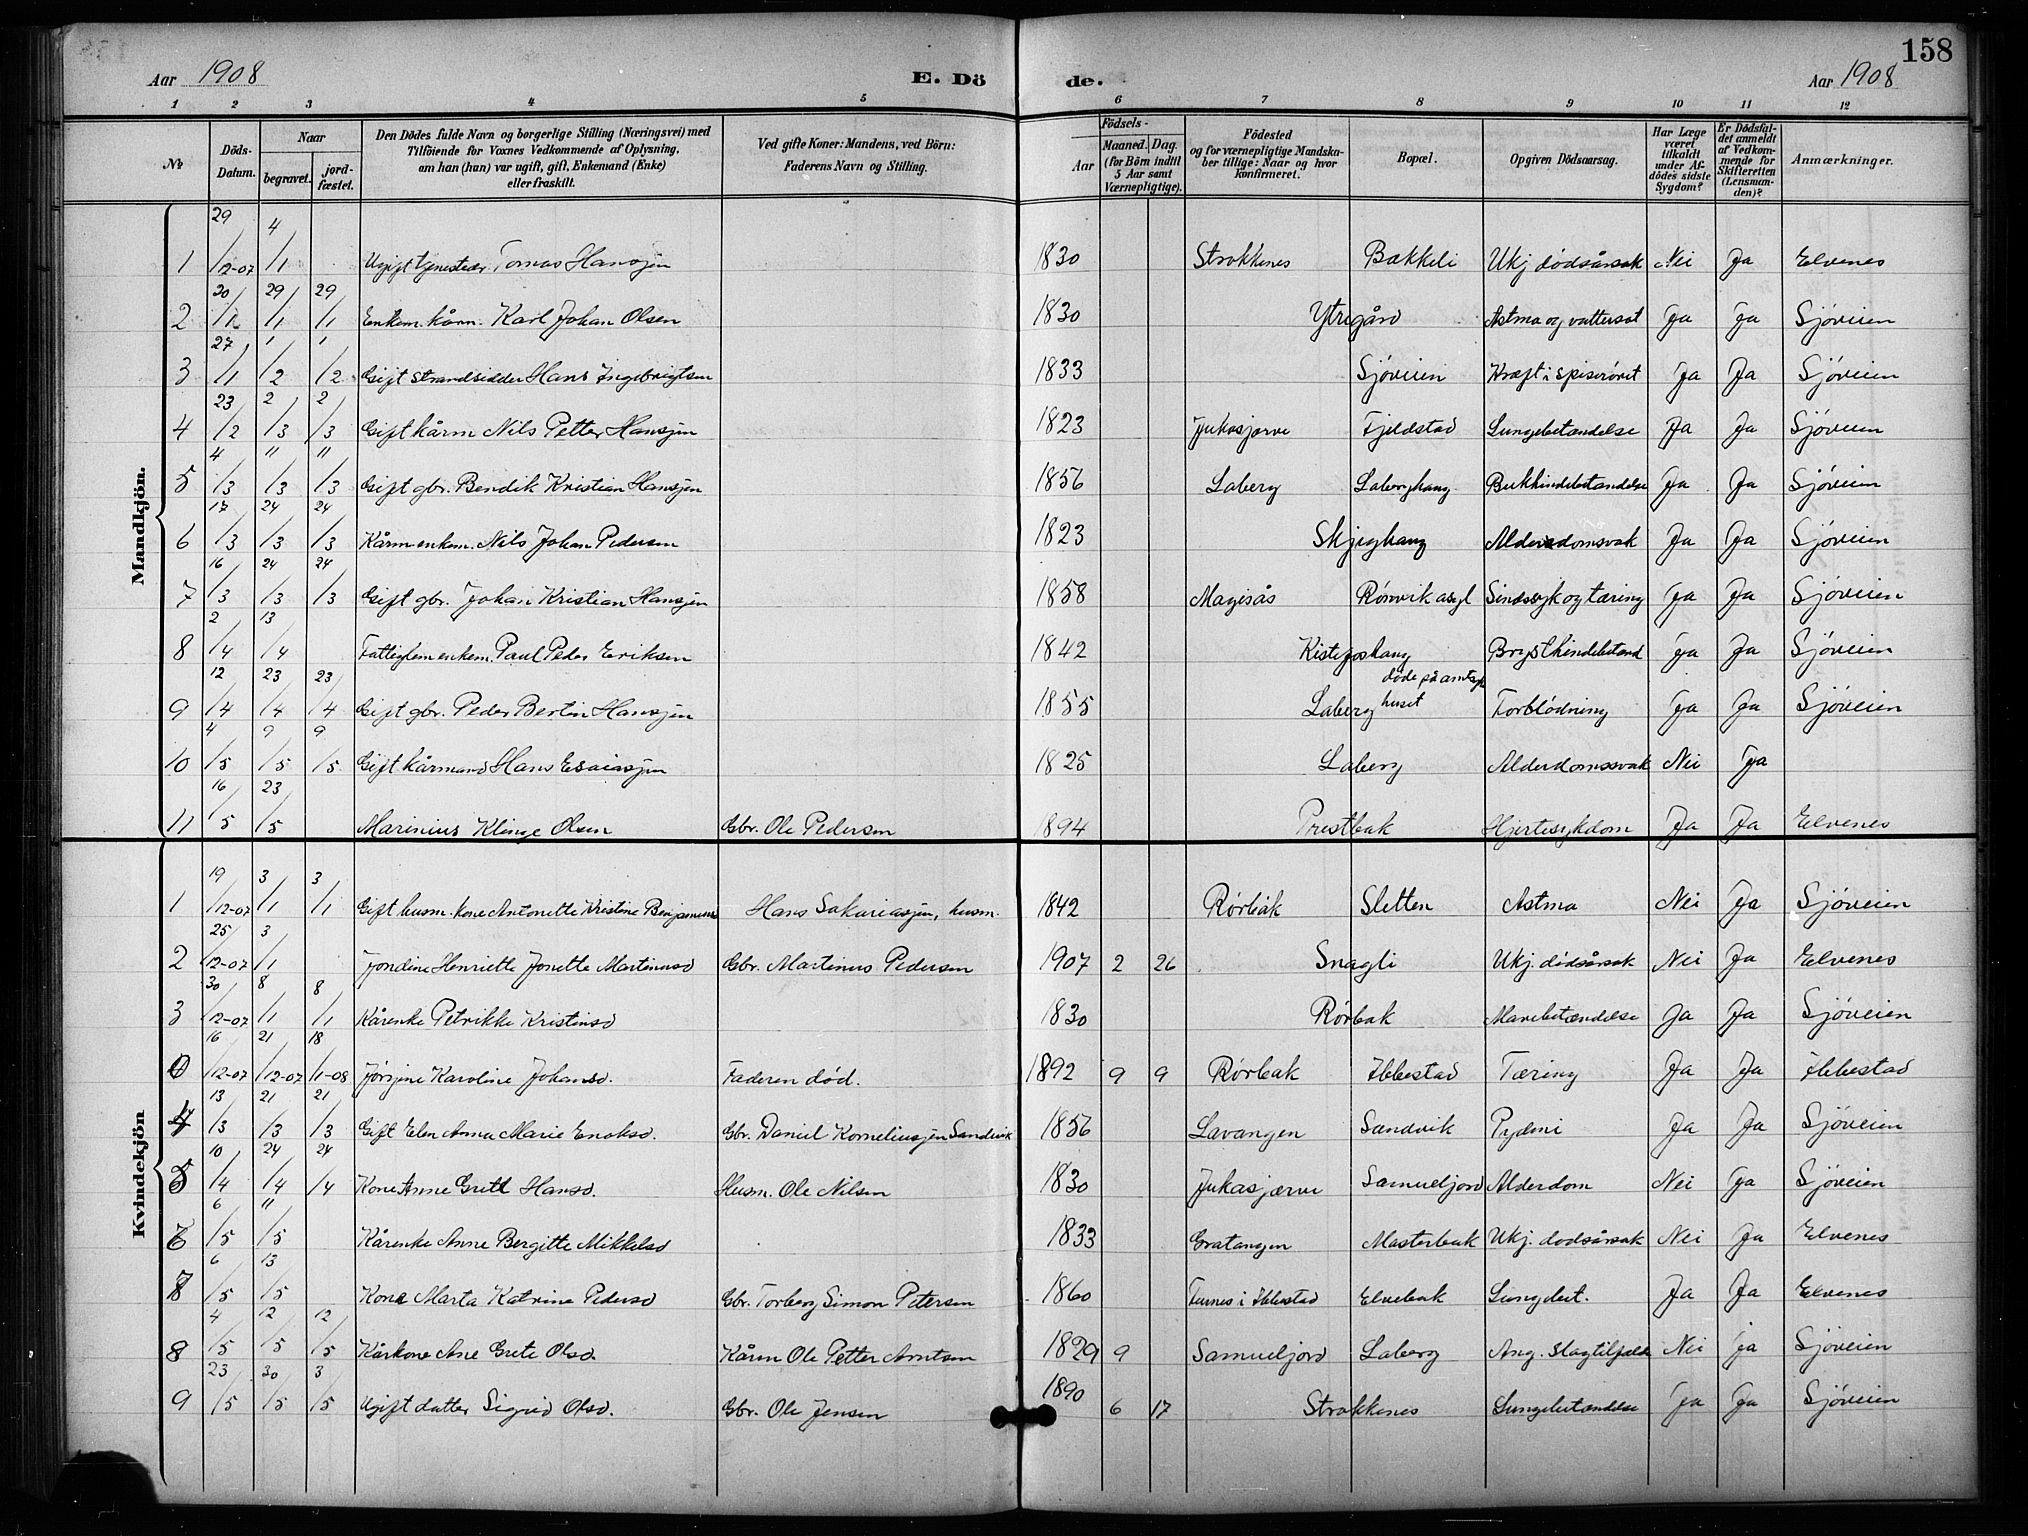 158
Aar 1908 E. Dö de. Aar 1908
1 2 3 4 5 6 7 8 9 10 11 12
№
Döds-Datum.
Naar
begravet.
jord-fæstet.
Den Dödes fulde Navn og borgerlige Stilling (Næringsvei) med
Tilföiende for Voxnes Vedkommende af Oplysning,
om han (hun) var ugift, gift, Enkemand (Enke)
eller fraskilt.
Ved gifte Koner: Mandens, ved Börn:
Faderens Navn og Stilling.
Födsels-
Aar
Maaned. Dag.
(for Börn indtil
5 Aar samt
Værnepligtige).
Födested
og for værnepligtige Mandska-
ber tillige: Naar og hvor
konfirmeret.
Bopæl.
Opgiven Dödsaarsag.
Har Læge
været
tilkaldt
under Af-
dödes sidste
Sygdom?
Er Dödsfal-
det anmeldt
af Vedkom-
mende for
Skifteretten
(Lensman-
den)?
Anmærkninger.
Mandkjön.
1 29/12-07 4/1 Ugift tjenestedr. Tomas Hansjen 1830 Strokkenes Bakkeli Ukj dødsårsak Nei Ja Elvenes
2 20/1 29/1 29/1 Enkem. kårm. Karl Johan Olsen 1830 Ytregård Astma og vattersot Ja Ja Sjøveien
3 27/1 1/2 1/2 Gift strandsidder Hans Ingebrigtsen 1833 Sjøveien Kræft i spiserøret Ja Ja Sjøveien
4 23/2 2/3 2/3 Gift kårm Nils Petter Hansjen 1823 Jukasjærve Fjeldstad Lungebetændelse Ja Ja Sjøveien
5 4/3 11/3 11/3 Gift gbr. Bendik Kristian Hansjen 1856 Laberg Laberghaug Bukhindebetændelse Ja Ja Sjøveien
6 17/3 24/3 24/3 Kårm enkem. Nils Johan Pedersen 1823 Skjeghaug Alderdomsvak Ja Ja Sjøveien
7 16/3 24/3 24/3 Gift gbr. Johan Kristian Hansjen 1858 Magisås Rønvik asyl Sindssyk og tæring Ja Ja Sjøveien
8 2/4 13/4 Fattiglem enkem. Paul Peder Eriksen 1842 Kistefoshaug Brysthindebetænd Ja Ja Sjøveien
9 12/4 23/4 23/4 Gift gbr. Peder Bertin Hansjen 1855 Laberg døde på amtsyk huset Forblødning Ja Ja Sjøveien
10 4/5 9/5 9/5 Gift kårmand Hans Esaiasjen 1825 Laberg Alderdomssvak Nei Ja
11 16/5 23/5 Marinius Klinge Olsen Gbr. Ole Pedersen 1894 Prestbak Hjertesykdom Ja Ja Elvenes
Kvindekjön
1 19/12-07 3/1 3/1 Gift husm. kone Antonette Kristine Benjaminsd Hans Sakariasjen, husm. 1842 Rørbak Sletten Astma Nei Ja Sjøveien
2 25/12-07 3/1 Jondine Henriette Jonette Martinusd Gbr. Martinus Pedersen 1907 2 26 Snagli Ukj. dødsårsak Nei Ja Elvenes
3 30/12-07 8/1 8/1 Kårenke Petrikke Kristensd 1830 Rørbak Mavebetændelse Ja Ja Sjøveien
0 16/12-07 21/12-07 18/1-08 Jørgine Karoline Johansd. Faderen død. 1892 9 9 Rørbak Ibbestad Tæring Ja Ja Ibbestad
4 13/3 21/3 21/3 Gift Elen Anna Marie Enoksd. Gbr. Daniel Korneliusjen Sandvik 1856 Lavangen Sandvik Pydmi Ja Ja Sjøveien
5 10/4 24/4 24/4 Kone Anne Grete Hansd. Husm. Ole Nilsen 1830 Jukasjærve Samueljord Alderdom Nei Ja Sjøveien
6 6/5 11/5 Kårenke Anne Bergitte Mikkelsd 1833 Gratangen Masterbak Ukj. dødsårsak Nei Ja Elvenes
7 6/5 13/5 Kone Marta Katrine Pedersd Gbr. Torberg Simon Petersen 1860 Furnes i Ibbestad Elvebak Lungebet. Ja Ja Elvenes
8 4/5 12/5 12/5 Kårkone Ane Grete Olsd. Kårm Ole Petter Arntsen 1829 9 Samueljord Laberg Ang. slagtilfælde Nei ja Sjøveien
9 23/5 30/5 3/5 Ugift datter Sigrid Olsd. Gbr. Ole Jensen 1890 6 17 Strokkenes Lungebetændelse Ja Ja Sjøveien